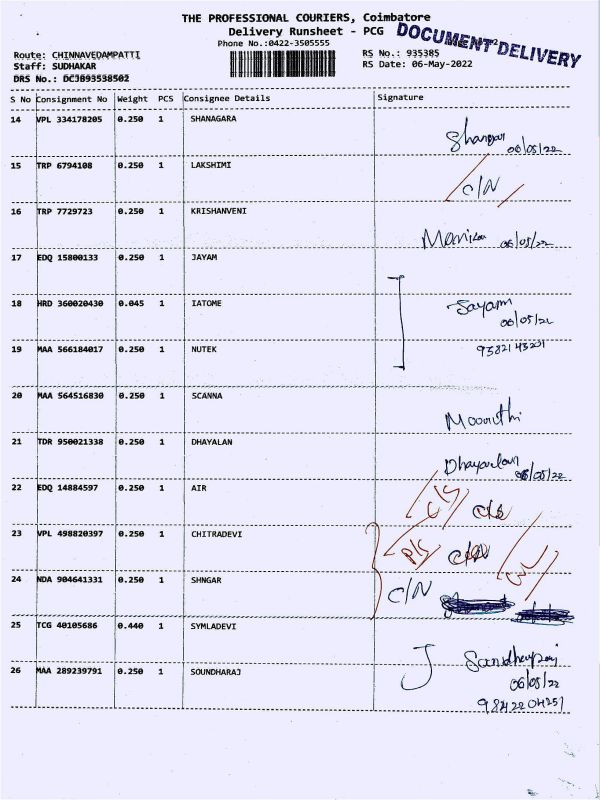 THE PROFESSIONAL COURIERS, Coimbatore
Delivery Runsheet - PCG
DOCUMENT DELIVERY
Phone No.:0422-3505555
Route: CHINNAVEDAMPATTI
RS No.: 935385
Staff: SUDHAKAR
RS Date: 06-May-2022
DRS No.: DCJB93538502
S No Consignment No Weight PCS Consignee Details Signature
14 VPL 334178205 0.250 1 SHANAGARA
06/05/22
15 TRP 6794108 0.250 1 LAKSHIMI
C/N
16 TRP 7729723 0.250 1 KRISHANVENI
06/05/22
17 EDQ 15800133 0.250 1 JAYAM
18 HRD 360020430 0.045 1 IATOME
Jayam
06/05/22
19 MAA 566184017 0.250 1 NUTEK
20 MAA 564516830 0.250 1 SCANNA
21 TDR 950021338 0.250 1 DHAYALAN
Dhayalan 06/05/22
22 EDQ 14884597 0.250 1 AIR
23 VPL 498820397 0.250 1 CHITRADEVI
24 NDA 904641331 0.250 1 SHNGAR
C/N
25 TCG 40105686 0.440 1 SYMLADEVI
26 MAA 289239791 0.250 1 SOUNDHARAJ
06/05/22
9842204251